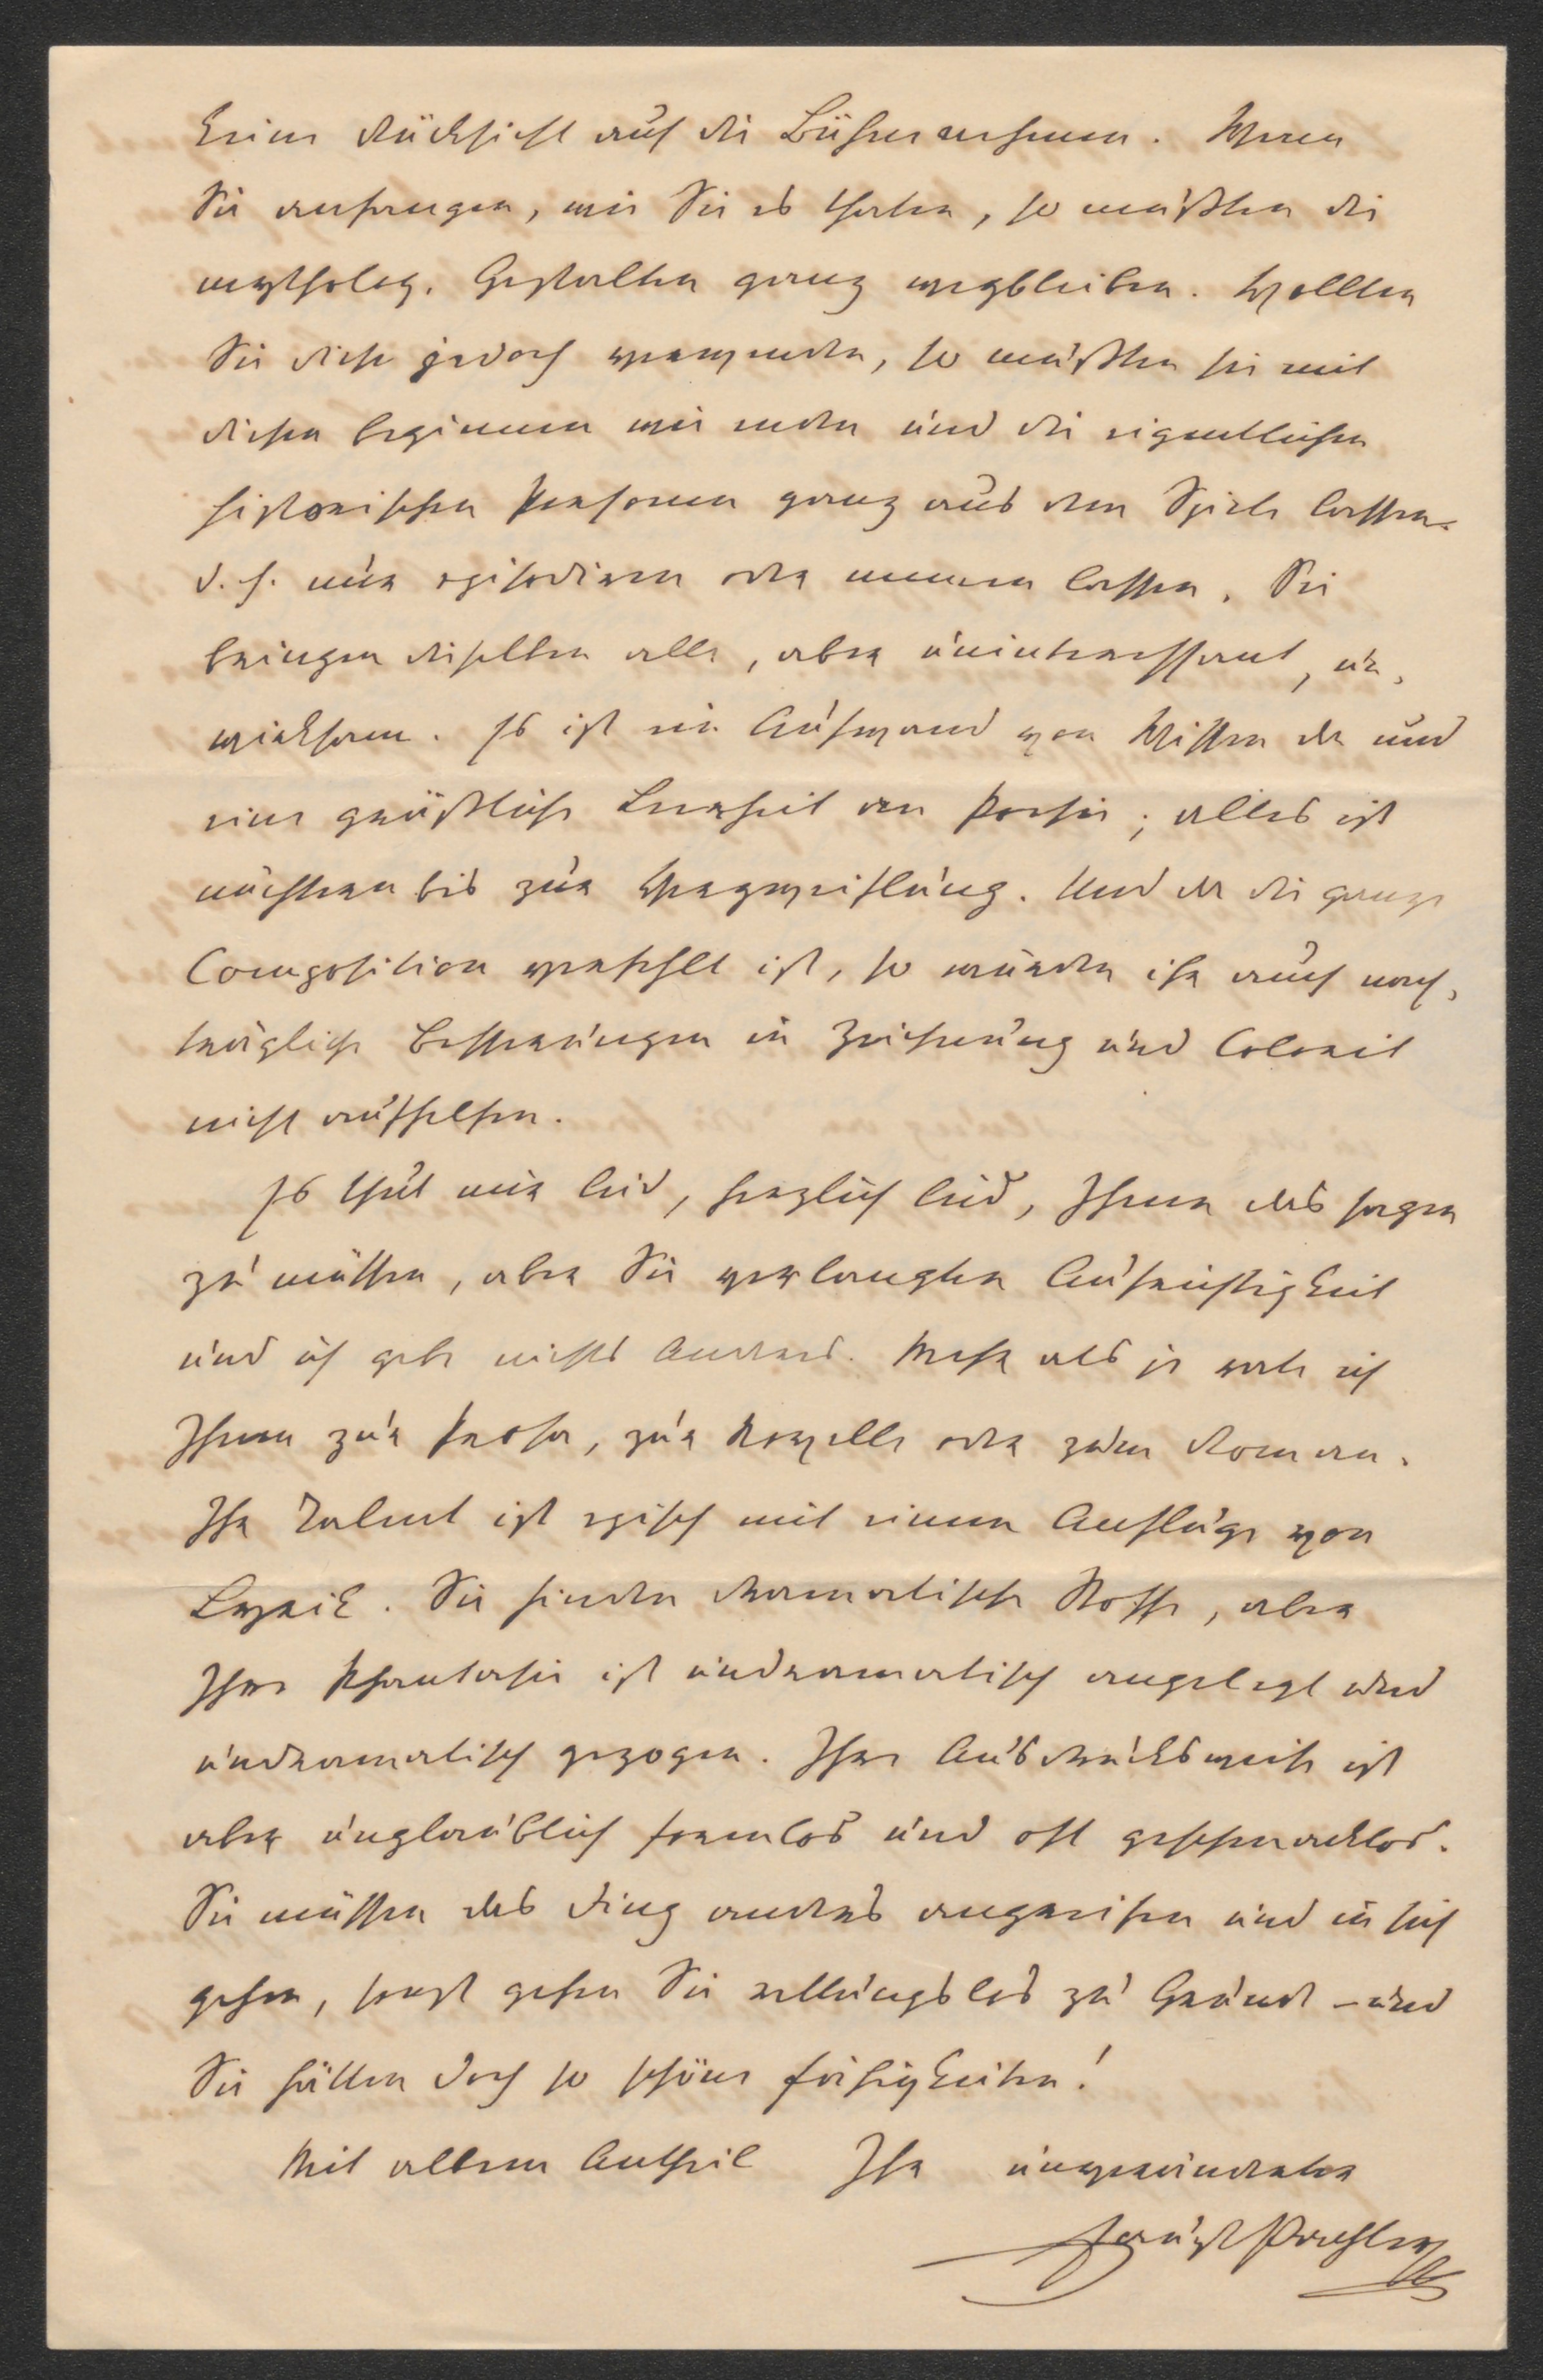 keine Rücksicht auf die Bühne nehmen. Wenn
Sie anfangen, wie Sie es thaten, so müßten die
mytholog. Gestalten ganz wegbleiben. Wollten
Sie diese jedoch verwenden, so müßten sie mit
diesen beginnen wie enden und die eigentlichen
historischen Personen ganz aus dem Spiele lassen.
d. h. nur episodiren oder nennen lassen. Sie
bringen dieselben alle, aber uninteressant, un-
wirksam. Es ist ein Aufwand von Wissen da und
eine gräßliche Leerheit an Poesie; alles ist
nüchtern bis zur Verzweiflung. Und da die ganze
Composition verfehlt ist, so würden ihr auch nach-
trägliche Besserungen in Zeichnung und Colorit
nicht aufhelfen.
Es thut mir leid, herzlich leid, Ihnen das sagen
zu müssen, aber Sie verlangten Aufrichtigkeit
und ich gebe nichts Anderes. Mehr als je rate ich
Ihnen zur Prosa, zur Novelle oder zum Roman.
Ihr Talent ist episch mit einem Anfluge von
Lyrik. Sie finden dramatische Stoffe, aber
Ihre Phantasie ist undramatisch angelegt und
undramatisch gezogen. Ihre Ausdrucksweise ist
aber unglaublich formlos und oft geschmacklos.
Sie müssen das Ding anders angreifen und in sich
gehen, sonst gehen Sie rettungslos zu Grunde – und
Sie hätten doch so schöne Fähigkeiten!
Mit allem Antheil Ihr unveränderter
Faust Pachler